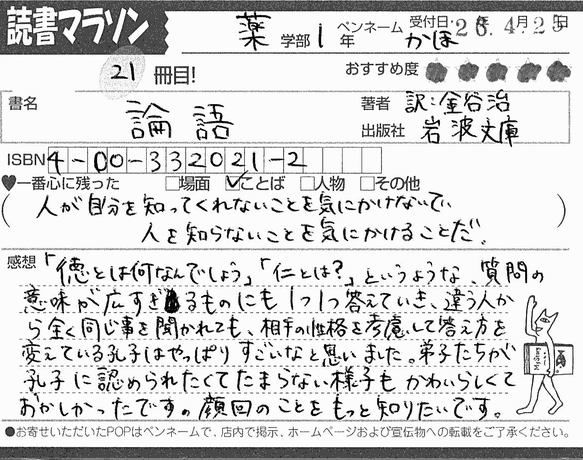 読書マラソン
薬 学部 1 年 ペンネーム かほ 受付日・26年4月25日
21 冊目! おすすめ度
書名 論語 著者 訳:金谷治
出版社 岩波文庫
ISBN 4-00-332021-2
♥一番心に残った □場面 ☑ことば □人物 □その他
(人が自分を知ってくれないことを気にかけないで、
人を知らないことを気にかけることだ。)
感想 「徳とは何なんでしょう」「仁とは?」というような、質問の
意味が広すぎるものにも1つ1つ答えていき、違う人か
ら全く同じ事を聞かれても、相手の性格を考慮して答え方を
変えている孔子はやっぱりすごいなと思いました。弟子たちが
孔子に認められたくてたまらない様子もかわいらしくて
おかしかったです。顔回のことをもっと知りたいです。
●お寄せいただいたPOPはペンネームで、店内で掲示、ホームページおよび宣伝物への転載をご了承ください。